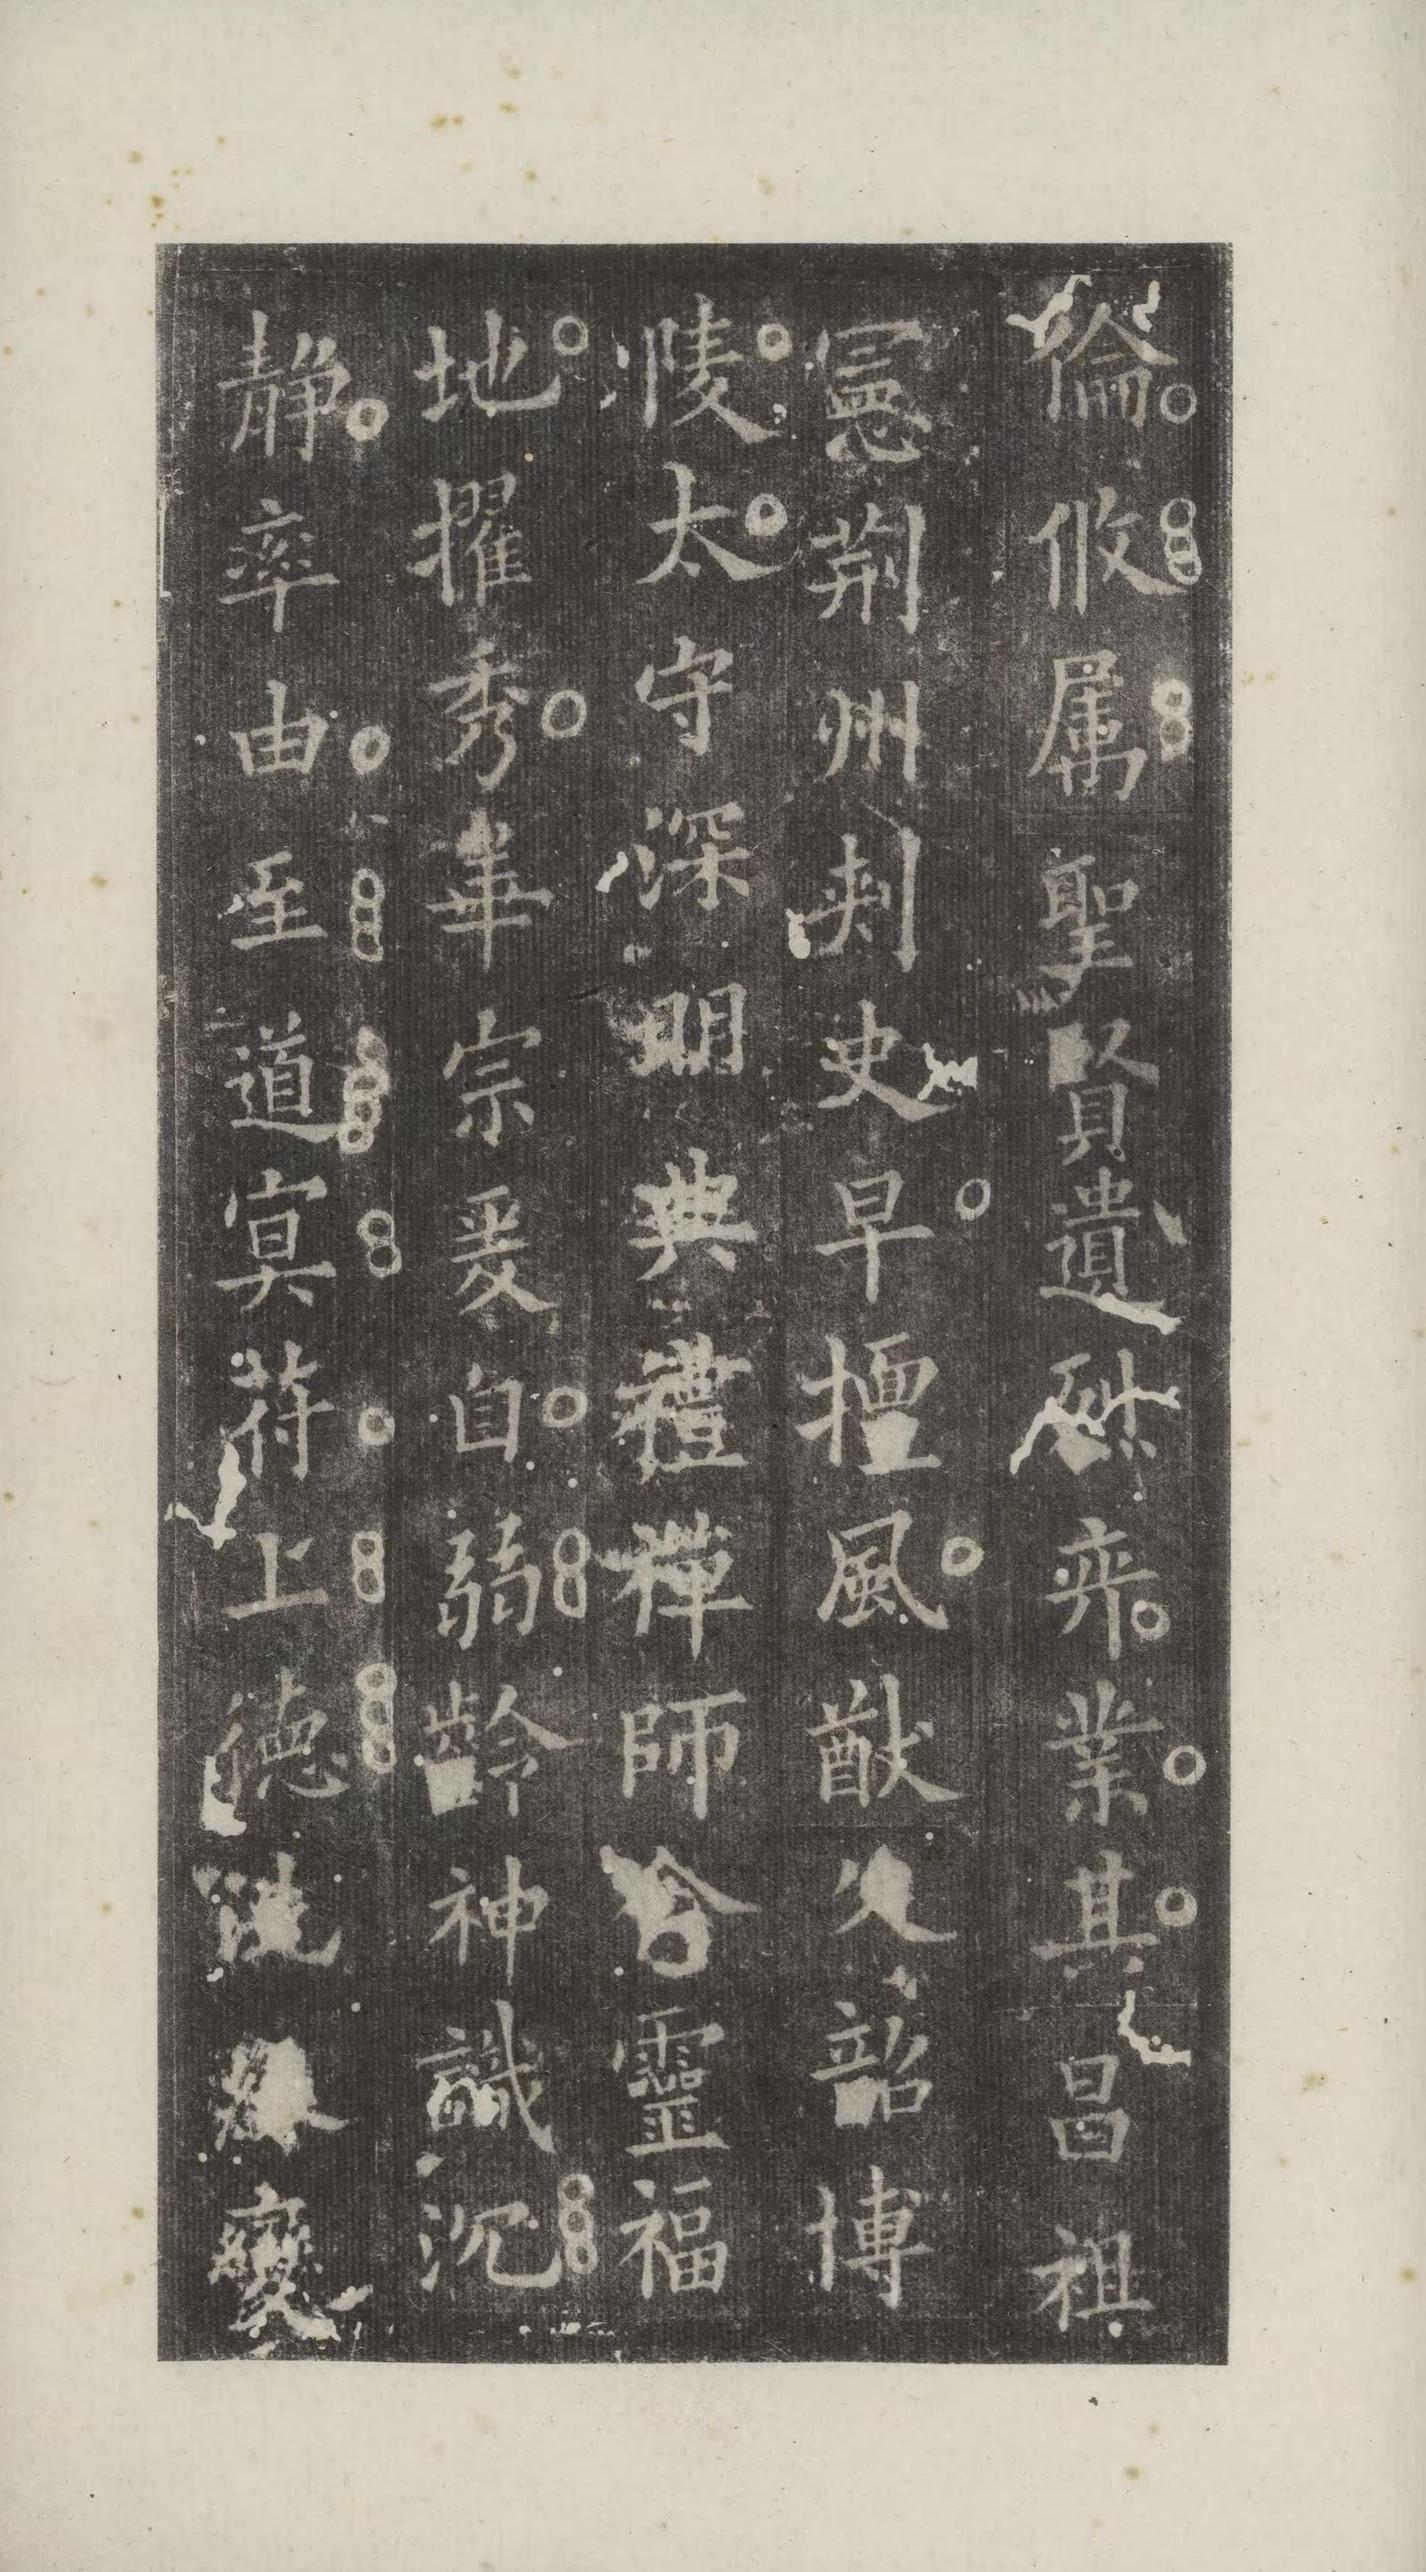 倫攸属聖賢遺烈弈業其昌祖
憲荊州刾史早擅風猷父韶博
陵太守深明典禮禪師含靈福
地擢秀華宗爰自弱齡神識沉
静率由至道冥苻上德